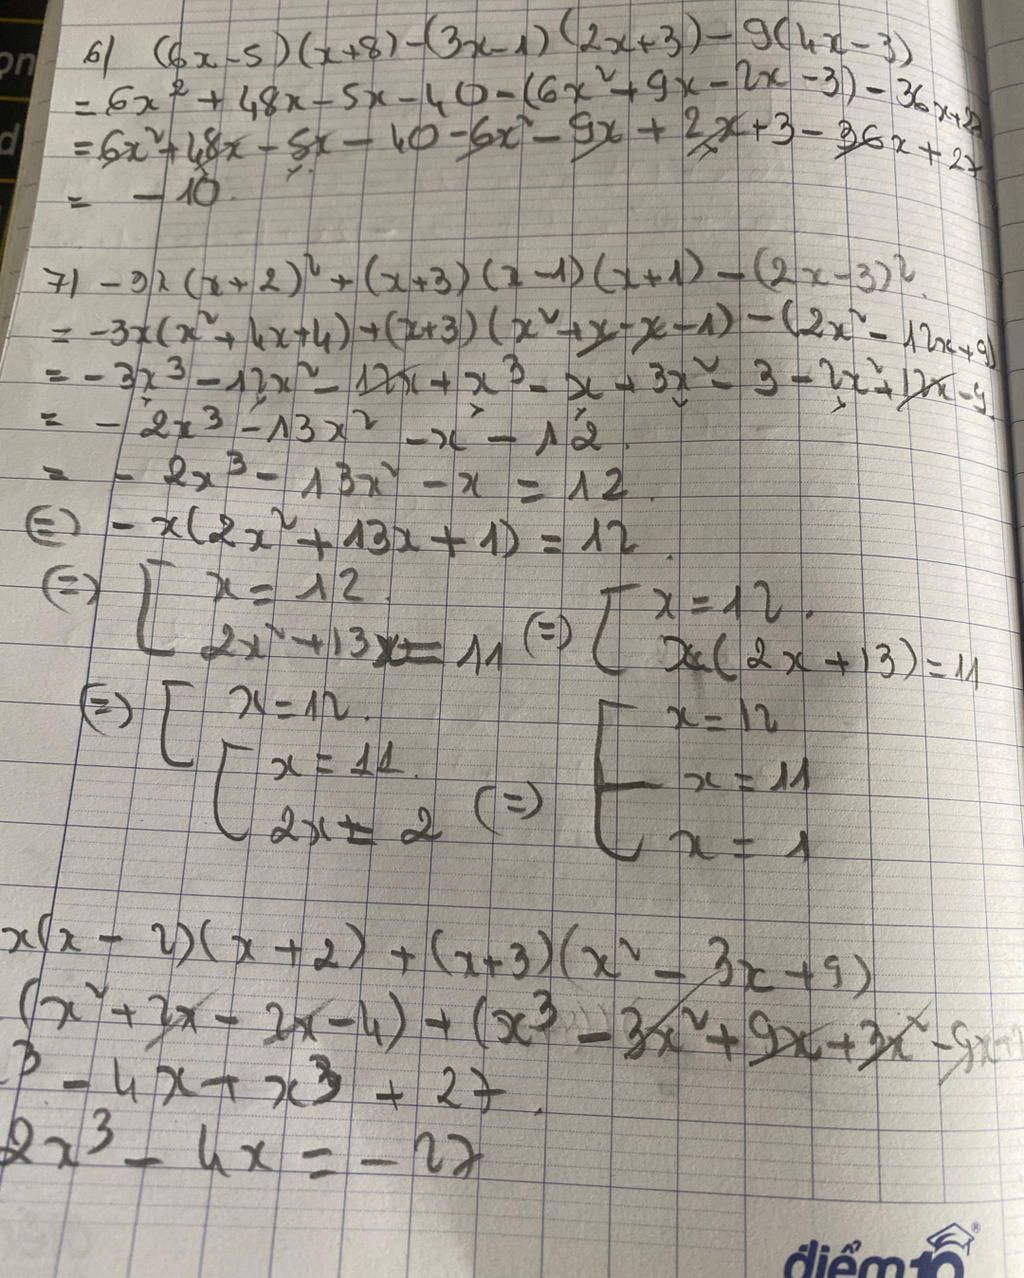 on
d
6) (6x-5)(x+8)-(3x-1)(2x+3)-9(4x-3)
= 6x² + 48x - 5x - 40 - (6x² + 9x - 2x - 3) - 36x+27
= 6x² + 48x - 5x - 40 - 6x² - 9x + 2x + 3 - 36x + 27
= - 10.
7) -3x(x+2)² + (x+3)(x-1)(x+1) - (2x-3)².
= -3x(x²+4x+4) + (x+3)(x²+x-x-1) - (2x²-12x+9)
= -3x³ - 12x² - 12x + x³ - x + 3x² - 3 - 2x² + 12x - 9
= - 2x³ - 13x² - x - 12.
= - 2x³ - 13x² - x = 12.
(=) - x(2x² + 13x + 1) = 12.
(=) [ x = 12. 2x² + 13x = 11 (=) [ x = 12. x(2x + 13) = 11
(=) [ x = 12. [ x = 11. 2x = 2 (=) [ x = 12 x = 11 x = 1
x(x - 2)(x + 2) + (x+3)(x² - 3x + 9)
(x² + 2x - 2x - 4) + (x³ - 3x² + 9x + 3x² - 9x
³ - 4x + x³ + 27.
2x³ - 4x = - 27
điểm10